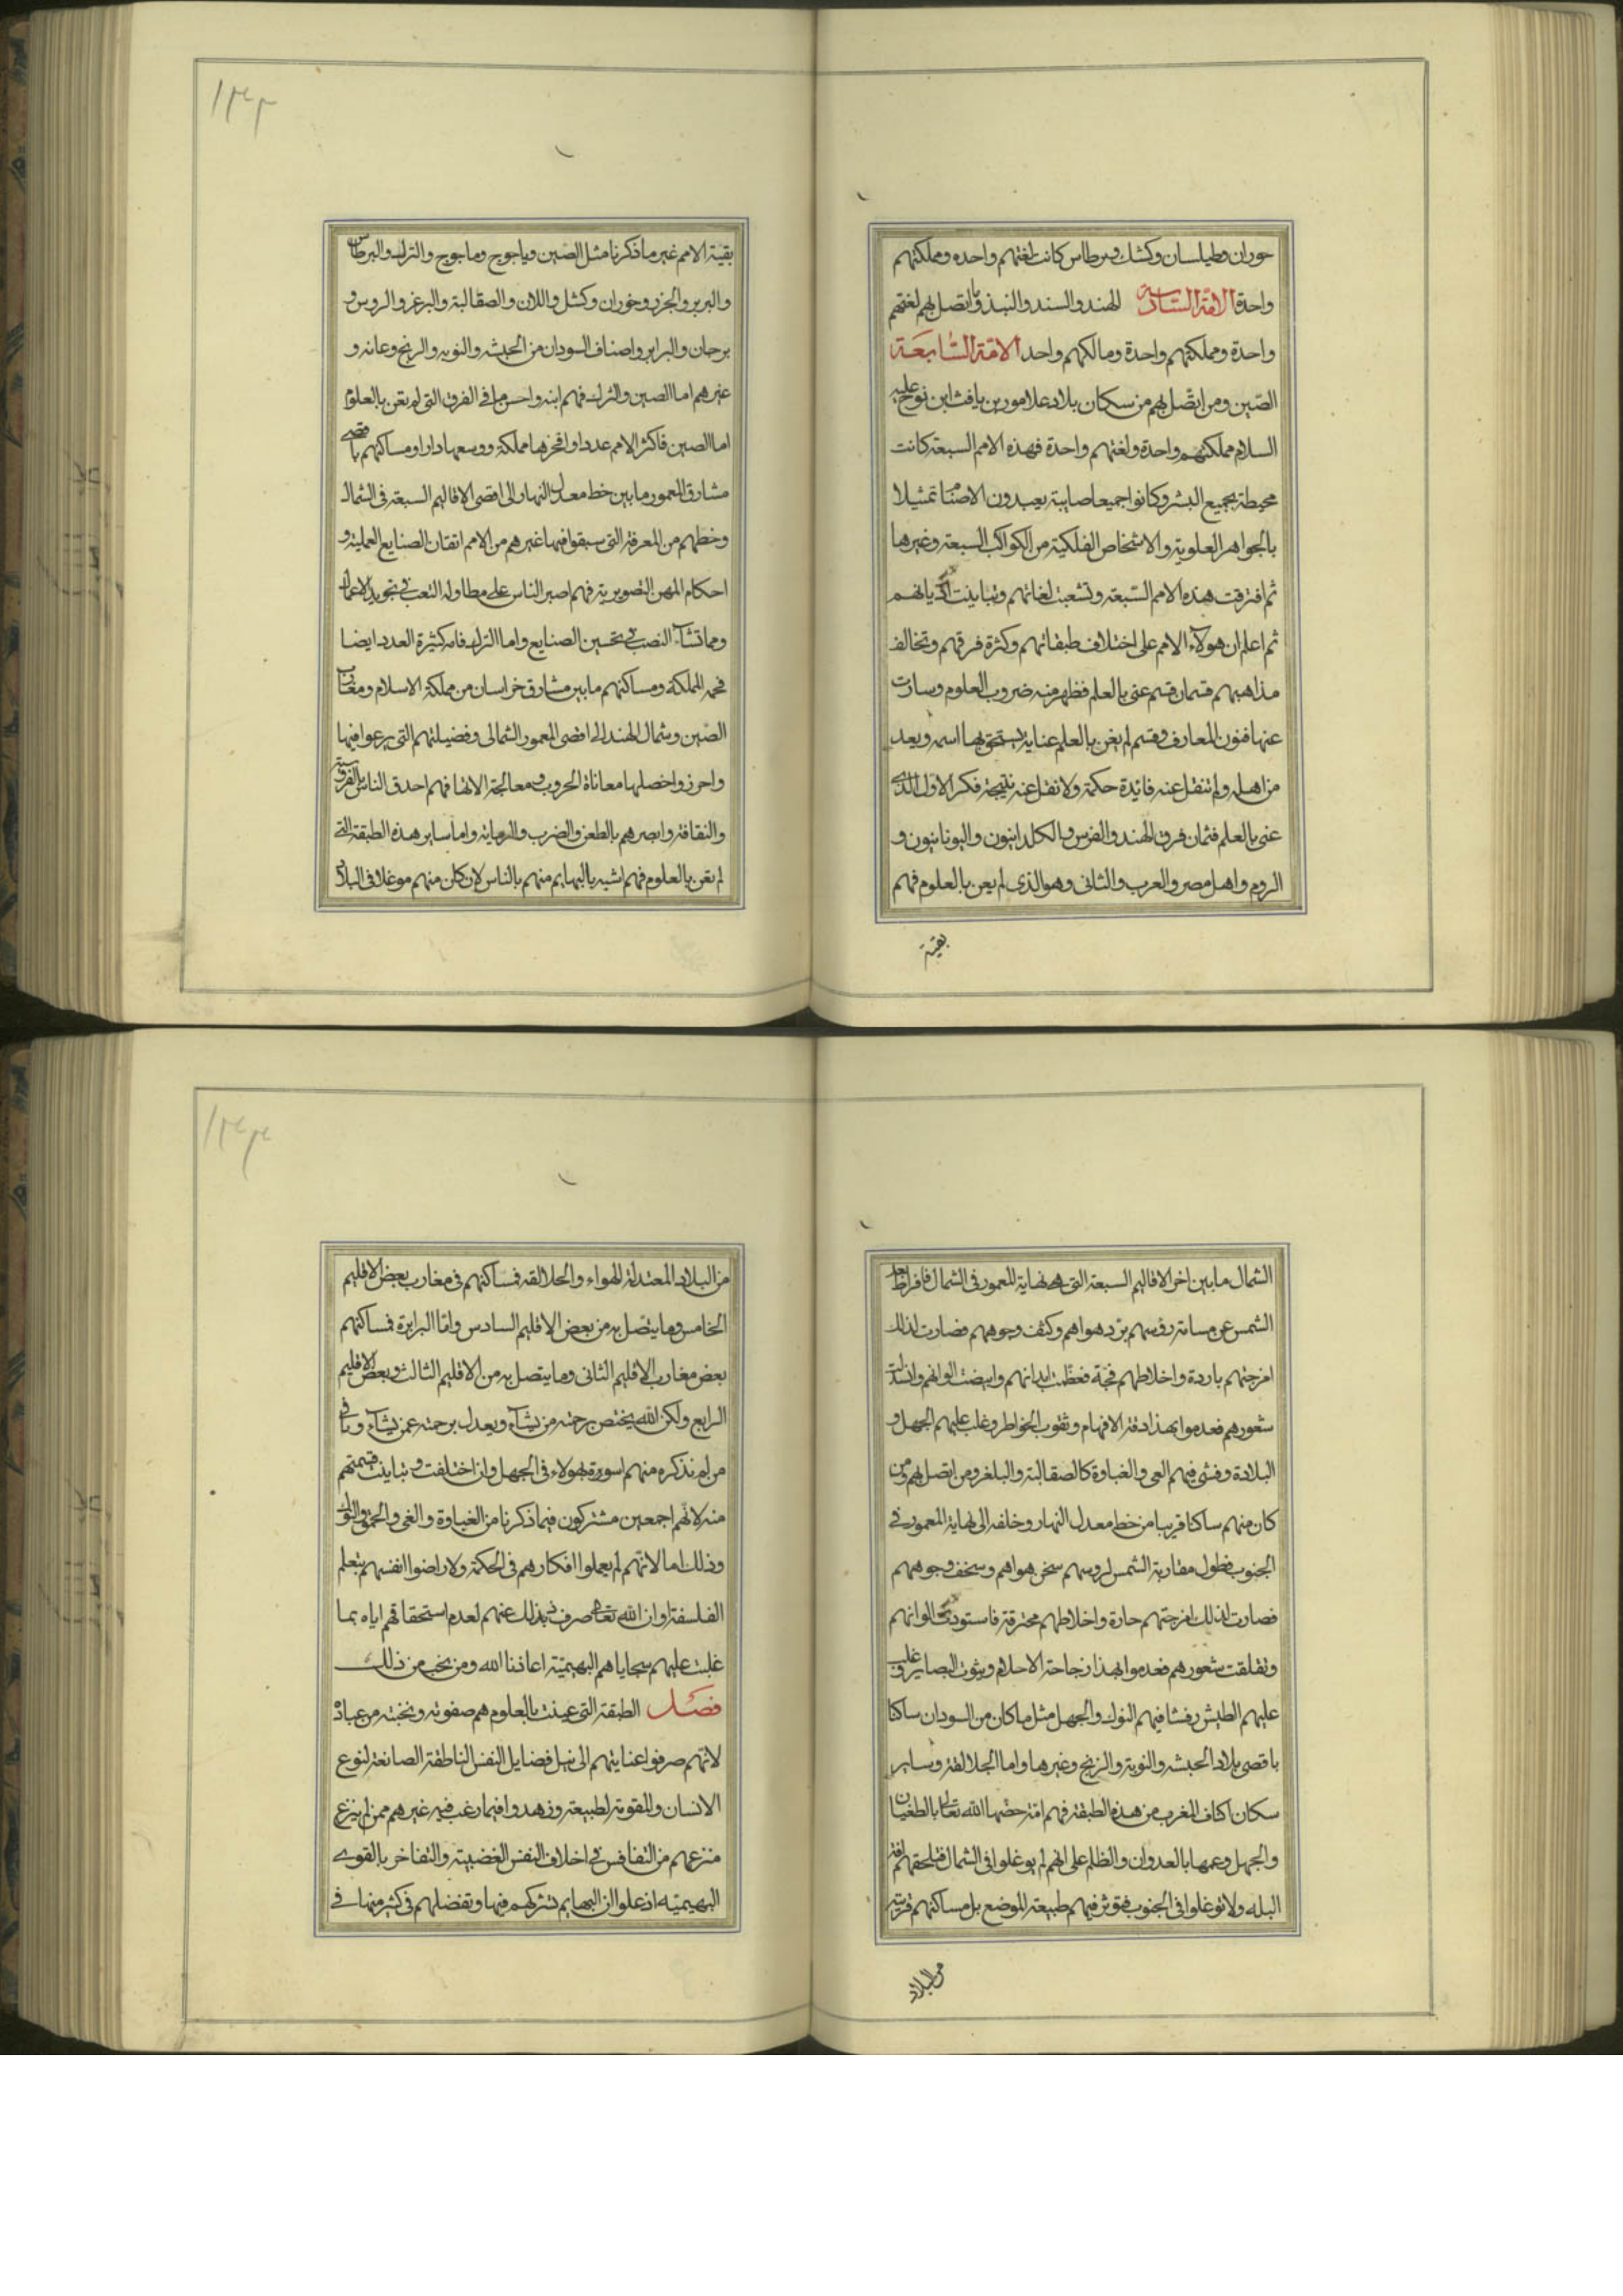 حوران وطيلسان وكشك وبرطاس كانت لغتهم واحده ومملكتهم
واحدة الامّة السّادسة الهند والسند والنبذ وما اتصل بهم لغتهم
واحدة ومملكتهم واحدة ومالكهم واحد الامّة السّابعَة
الصّين ومن اتصّل بهم من سكان بلاد علامور بن يافث ابن نوح عليه
السلام مملكتهم واحدة ولغتهم واحدة فهذه الامم السبعة كانت
محيطة بجميع البشر وكانوا جميعا صابية يعبدون الاصنام تمثيلا
بالجواهر العلوية والاشخاص الفلكية من الكواكب السبعة وغيرها
ثم افترقت هذه الامم السّبعة وتشعبت لغاتهم وتباينت اديانهم
ثم اعلم ان هولآء الامم على اختلاف طبقاتهم وكثرة فرقهم وتخالف
مذاهبهم قسمان قسم عنى بالعلم فظهر منه ضروب العلوم وسارت
عنها فنون المعارف وقسم لم يغن بالعلم عناية يستحق بها اسمه ويعد
من اهله ولم تنقل عنه فائدة حكمة ولا نقل عنه نتيجة فكر الاول الذى
عنى بالعلم فثمان فرق الهند والفرس والكلدانيون واليونانيون و
الروم واهل مصر والعرب والثانى وهو الذى لم يعن بالعلوم فهم
بقية
١٣٢
بقية الامم غير ما ذكرنا مثل الصّين وياجوج وماجوج والترك والبرطاس
والبربر والجزر وخوران وكشل واللان والصقالبة والبرغز والروس و
برجان والبرابر واصناف السودان من الحبشه والنوبه والزنج وغانه و
غيرهم اما الصين والترك فهم انبه واحسن ما فى الفرق التى لم تعن بالعلوم
اما الصين فاكثر الامم عددا وافخرها مملكة ووسعها دارا ومساكنهم باقصى
مشارق المعمور ما بين خط معدل النهار الى اقصى الاقاليم السبعة فى الشمال
وخطهم من المعرفة التى سبقوا فيها غيرهم من الامم اتقان الصنايع العملية و
احكام المهن التصويرية فهم اصبر الناس على مطاوله التعب فى تجويد الاعمال
ومما تشآء النصب فى تحسين الصنايع واما الترك فامه كثيرة العدد ايضا
فخمه المملكة ومساكنهم ما بين مشارق خراسان من مملكة الاسلام ومغارب
الصّين وشمال الهند الى اقصى المعمور الشمالى وفضيلتهم التى برعوا فيها
واحرزوا خصلها معاناة الحروب ومعالجة الاتها فهم احدق الناس بالفروسية
والثقافة وابصرهم بالطعن والضرب والرماية واما ساير هذه الطبقة التى
لم تعن بالعلوم فهم اشبه بالبهايم منهم بالناس لان كان منهم موغلا فى البلاد
الشمال ما بين اخر الاقاليم السبعة التى هى نهاية المعمور فى الشمال فافراط بعد
الشمس عن مسامتة رؤسهم برّد هواهم وكثف وجوههم فصارت لذلك
امزجتهم باردة واخلاطهم فجّة فعظمت ابدانهم وابيضت الوانهم وانسدلت
شعورهم فعدموا بهذا دقة الافهام وثقوب الخواطر وغلب عليهم الجهل و
البلادة وفشى فيهم العى والغباوة كالصقالبة والبلغر ومن اتصل بهم ومن
كان منهم ساكنا قريبا من خط معدل النهار وخلفه الى نهاية المعمور فى
الجنوب فطول مقاربة الشمس لروسهم سخن هواهم وسخف وجوههم
فصارت لذلك امزجتهم حارة واخلاطهم محترقة فاستودت الوانهم
وتفلقت شعورهم فعدموا بهذا رجاحة الاحلام وثبوت البصاير وغلب
عليهم الطيش وفشا فيهم النوك والجهل مثل ما كان من السودان ساكنا
باقصى بلاد الحبشه والنوبة والزنج وغيرها واما الجلالقة وساير
سكان اكناف المغرب من هذه الطبقة فهم امّة خصّها الله تعالى بالطغيان
والجهل وعمها بالعدوان والظلم على انهم لم يوغلوا فى الشمال فتلحقهم افة
البله ولا توغلوا فى الجنوب فتوثر فيهم طبيعة الموضع بل مساكنهم قريبة
من البلاد
١٣٣
من البلاد المعتدلة الهواء والجلالقه فمساكنهم فى مغارب بعض الاقليم
الخامس وما يتصل به من بعض الاقليم السادس وامّا البرابرة فمساكنهم
بعض مغارب الاقليم الثانى وما يتصل به من الاقليم الثالث وبعض الاقليم
الرابع ولكن الله يختص برحمته من يشآء ويعدل برحمته عمن يشآء وباقى
من لم نذكره منهم اسوة بهولاء فى الجهل وان اختلفت وتباينت قسمتهم
منه لانّهم اجمعين مشتركون فيما ذكرنا من الغباوة والغى والحمق والنوك
وذلك اما لانّهم لم يعملوا افكارهم فى الحكمة ولا راضوا انفسهم بتعلم
الفلسفة او ان الله تعالى صرف ذلك عنهم لعدم استحقاقهم اياه بما
غلبت عليهم سجاياهم البهيميّة اعاذنا الله ومن يحب من ذلك
فصَل الطبقة التى عينت بالعلوم هم صفوته ونخبته من عباده
لانّهم صرفوا عنايتهم الى نيل فضايل النفس الناطقة الصانعة لنوع
الانسان والمقومة لطبيعته وزهدوا فيما رغب فيه غيرهم ممن لم ينزع
منزعهم من التنافس فى اخلاق النفس الغضبية والتفاخر بالقوى
البهيميّه اذ علموا ان البهايم تشركهم فيها وتفضلهم فى كثير منها فى